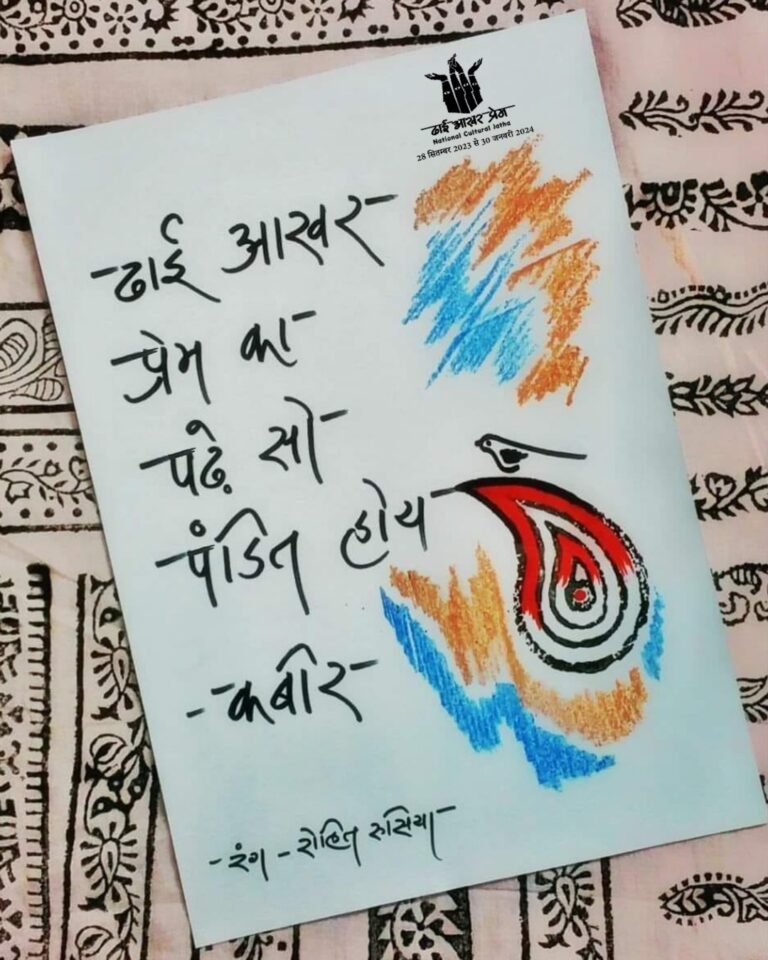 ढाई आखर प्रेम
National Cultural Jatha
28 सितम्बर 2023 से 30 जनवरी 2024
ढाई आखर
प्रेम का
पढ़े सो
पंडित होय
- कबीर
- रंग - रोहित रुसिया